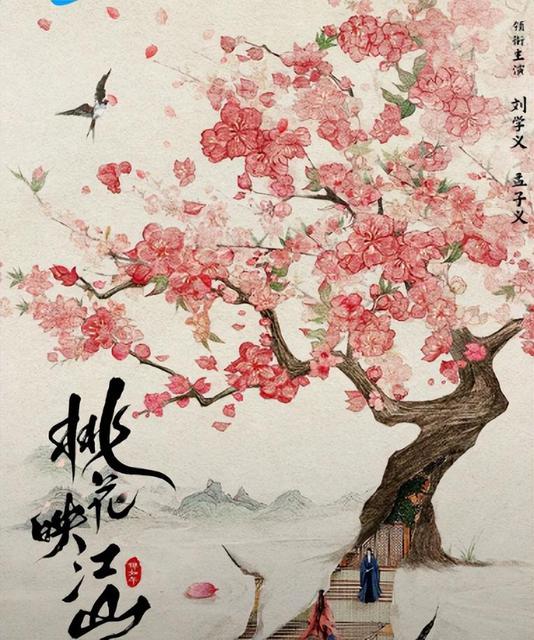 领衔主演
刘学义 孟子义
桃花
映江山